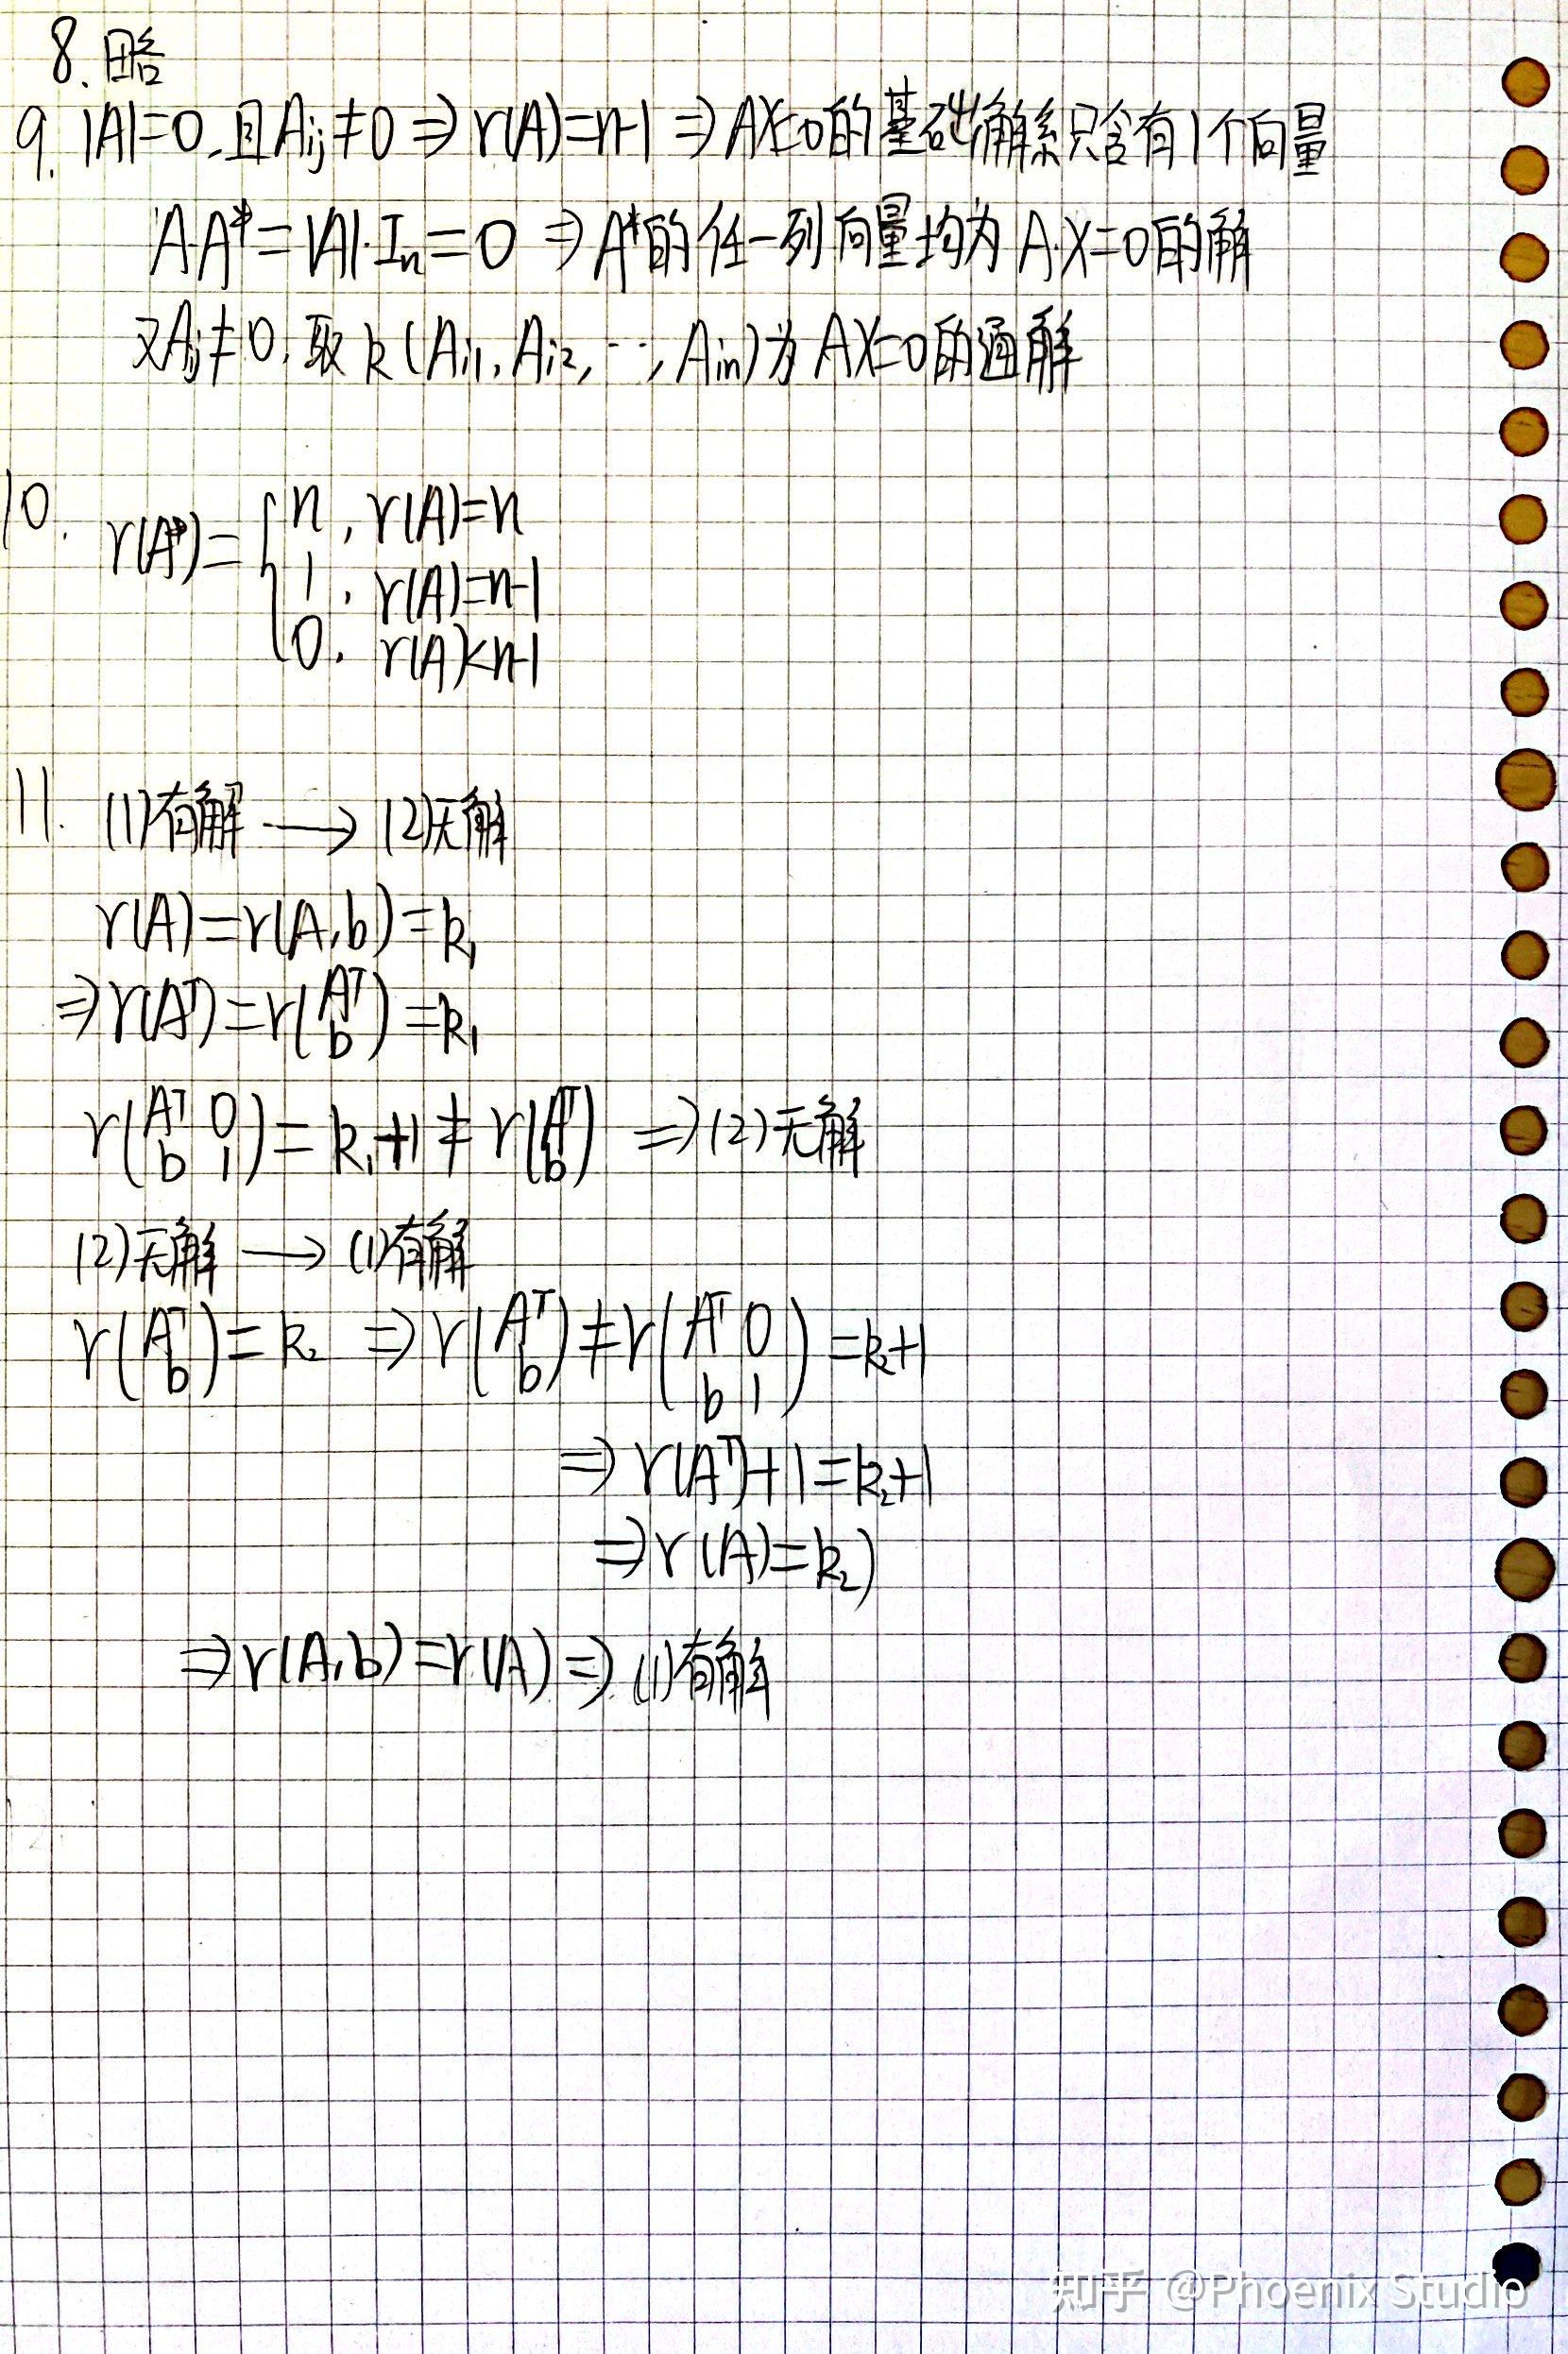 8. 略
9. |A|=0, 且Aij≠0 ⇒ r(A)=n-1 ⇒ AX=0的基础解系只含有1个向量
A·A*=|A|·In=0 ⇒ A*的任一列向量均为A·X=0的解
又Aij≠0, 取k(Ai1, Ai2, …, Ain)为AX=0的通解
10. r(A*)= { n, r(A)=n
1, r(A)=n-1
0, r(A)<n-1
11. (1)有解 → (2)无解
r(A)=r(A,b)=k₁
⇒r(Aᵀ)=r(Aᵀ
b)=k₁
r(Aᵀ 0
b 1)=k₁+1≠r(Aᵀ
b) ⇒(2)无解
(2)无解 → (1)有解
r(Aᵀ
b)=k₂ ⇒r(Aᵀ
b)≠r(Aᵀ 0
b 1)=k₂+1
⇒r(Aᵀ)+1=k₂+1
⇒r(A)=k₂)
⇒r(A,b)=r(A)⇒(1)有解
知乎 @Phoenix Studio